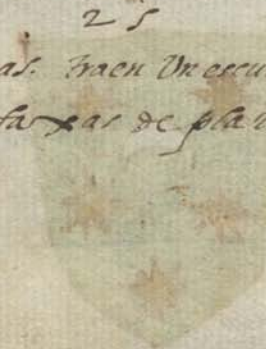 25
as. Traen Un escu
faxas de pla